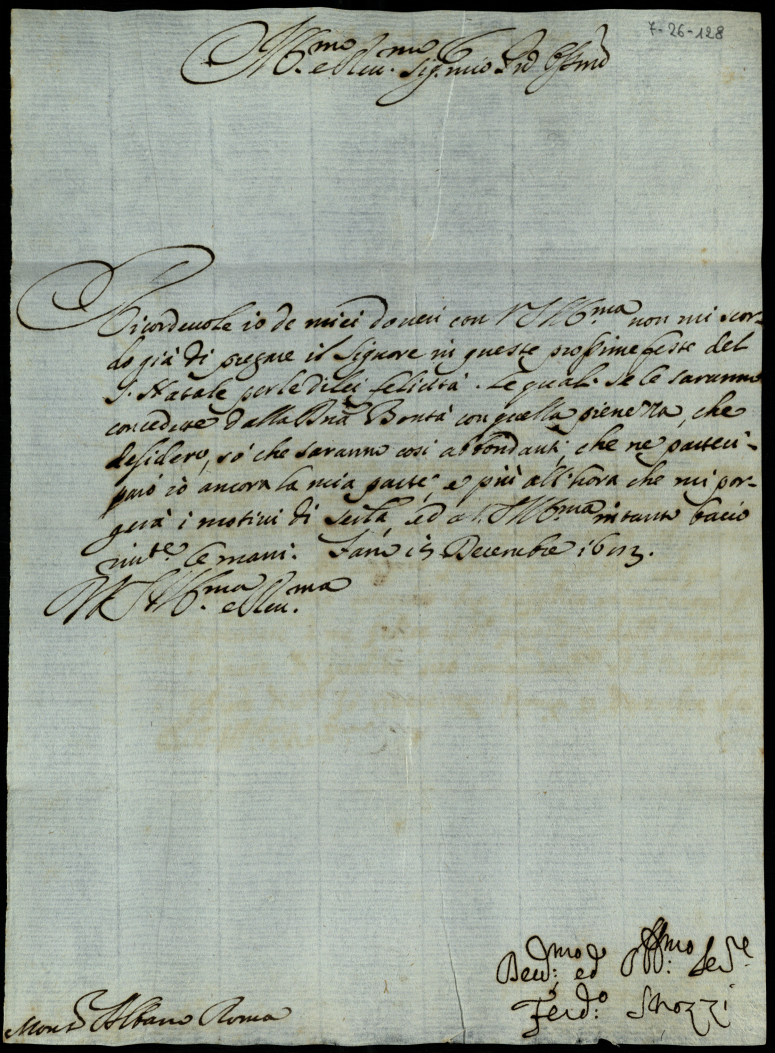 7-26-128
Ill.mo e Reu.mo Sig. mio P.ron Oss.mo
Ricordeuole io de miei doueri con V S Ill.ma non mi scor-
do già di pregare il Signore in queste prossime feste del
S. Natale per le di lei felicità. Le quali se le saranno
concedute dalla Diuina Bontà con quella pienezza, che
desidero, sò che saranno cosi abbondanti, che ne parteci-
parò iò ancora la mia parte, e più all'hora che mi por-
gerà i motiui di seruirla, ed a V. S Ill.ma in tanto bacio
riu.te le mani. Fano 15 Decembre
Di V S Ill.ma e Reu.ma
Deu.mo ed Obb.mo Se.re
Ferd.o Strozzi
Mons. Albano Roma